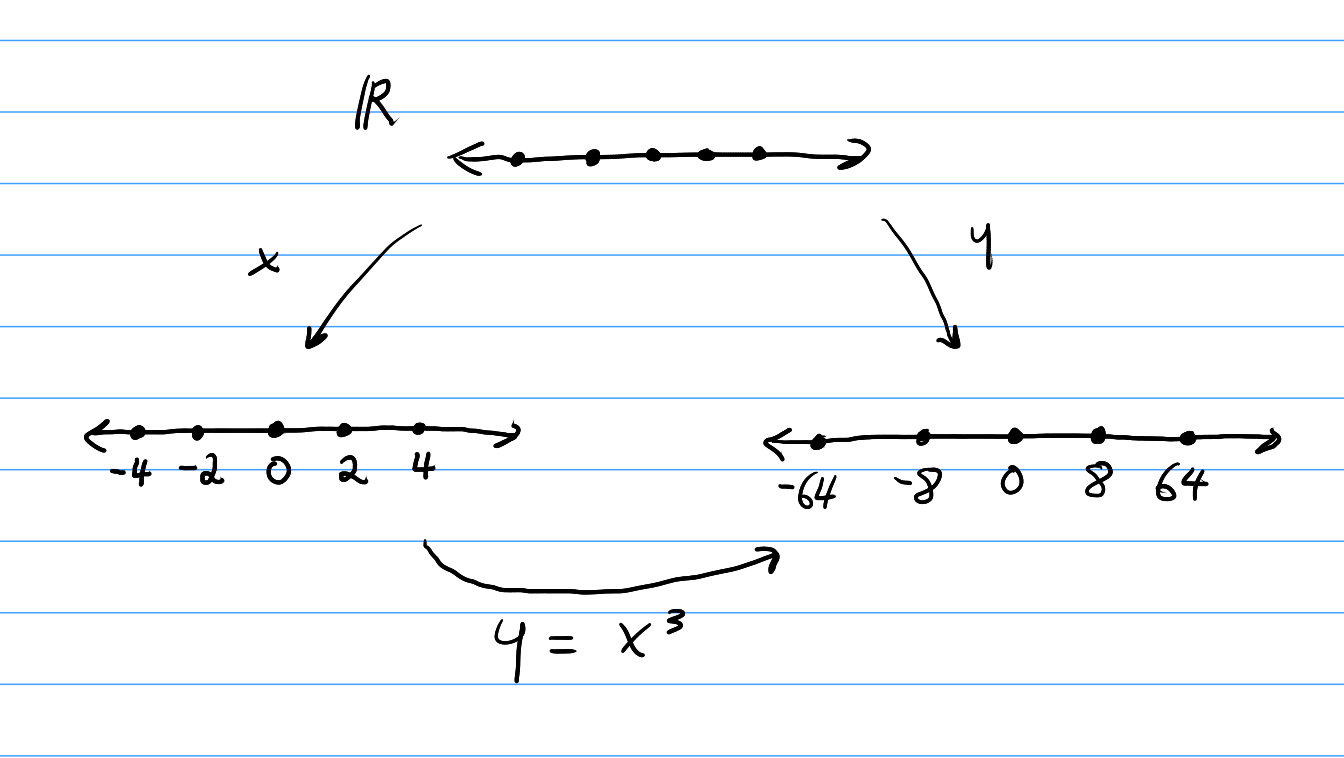 ℝ
x y
-4 -2 0 2 4
-64 -8 0 8 64
y = x³